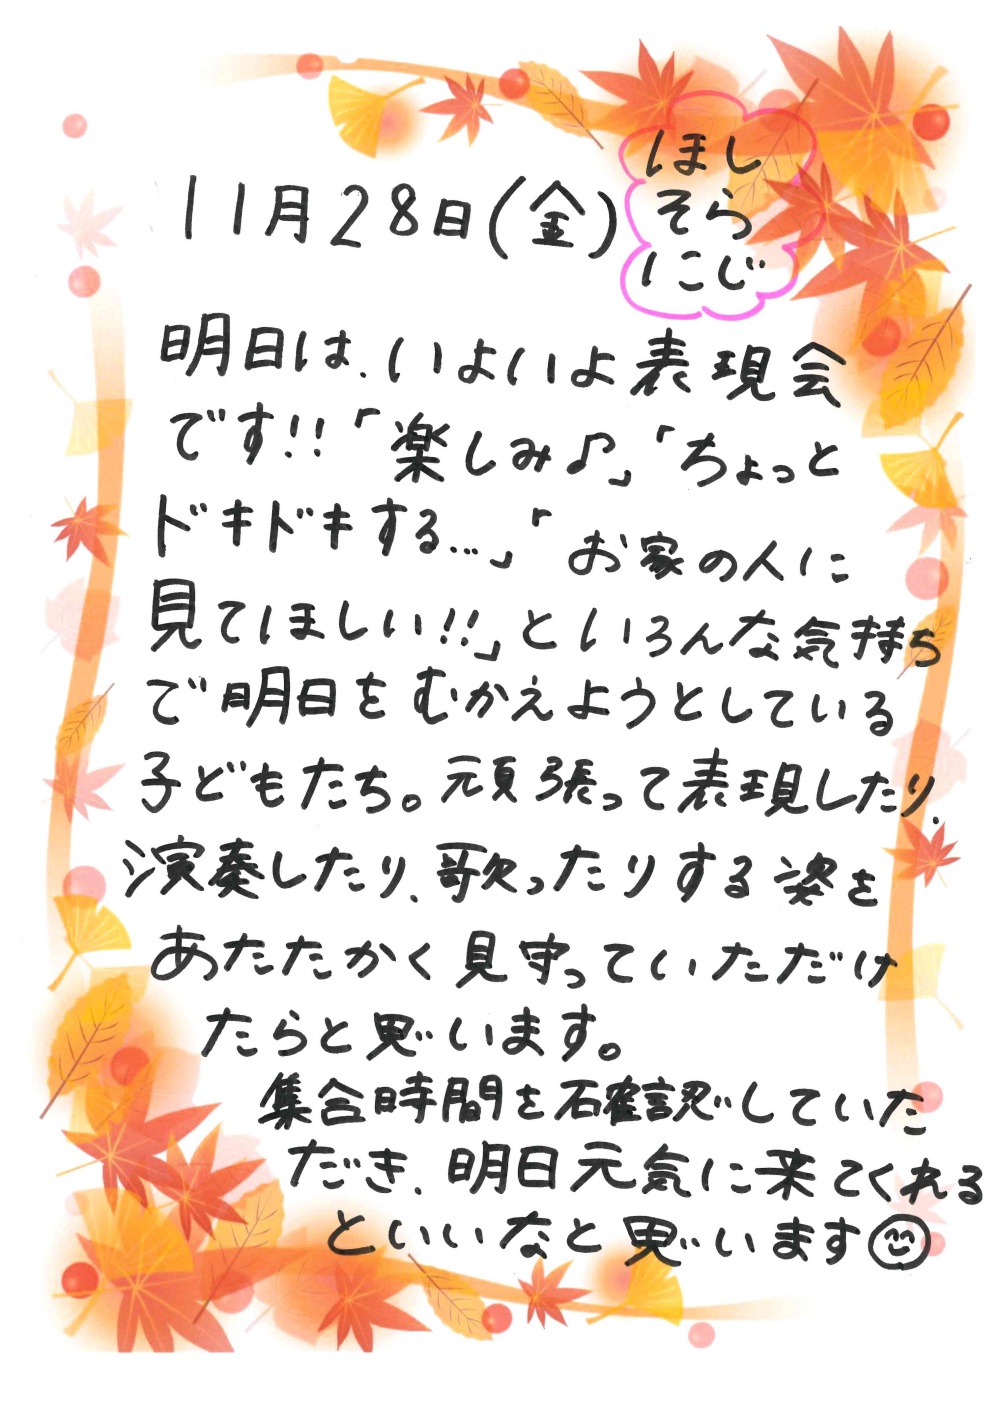 11月28日(金)
ほし
そら
にじ
明日は、いよいよ表現会
です!!「楽しみ♪」「ちょっと
ドキドキする…」「お家の人に
見てほしい!!」といろんな気持ち
で明日をむかえようとしている
子どもたち。頑張って表現したり、
演奏したり、歌ったりする姿を
あたたかく見守っていただけ
たらと思います。
集合時間を確認していた
だき、明日元気に来てくれる
といいなと思います😊